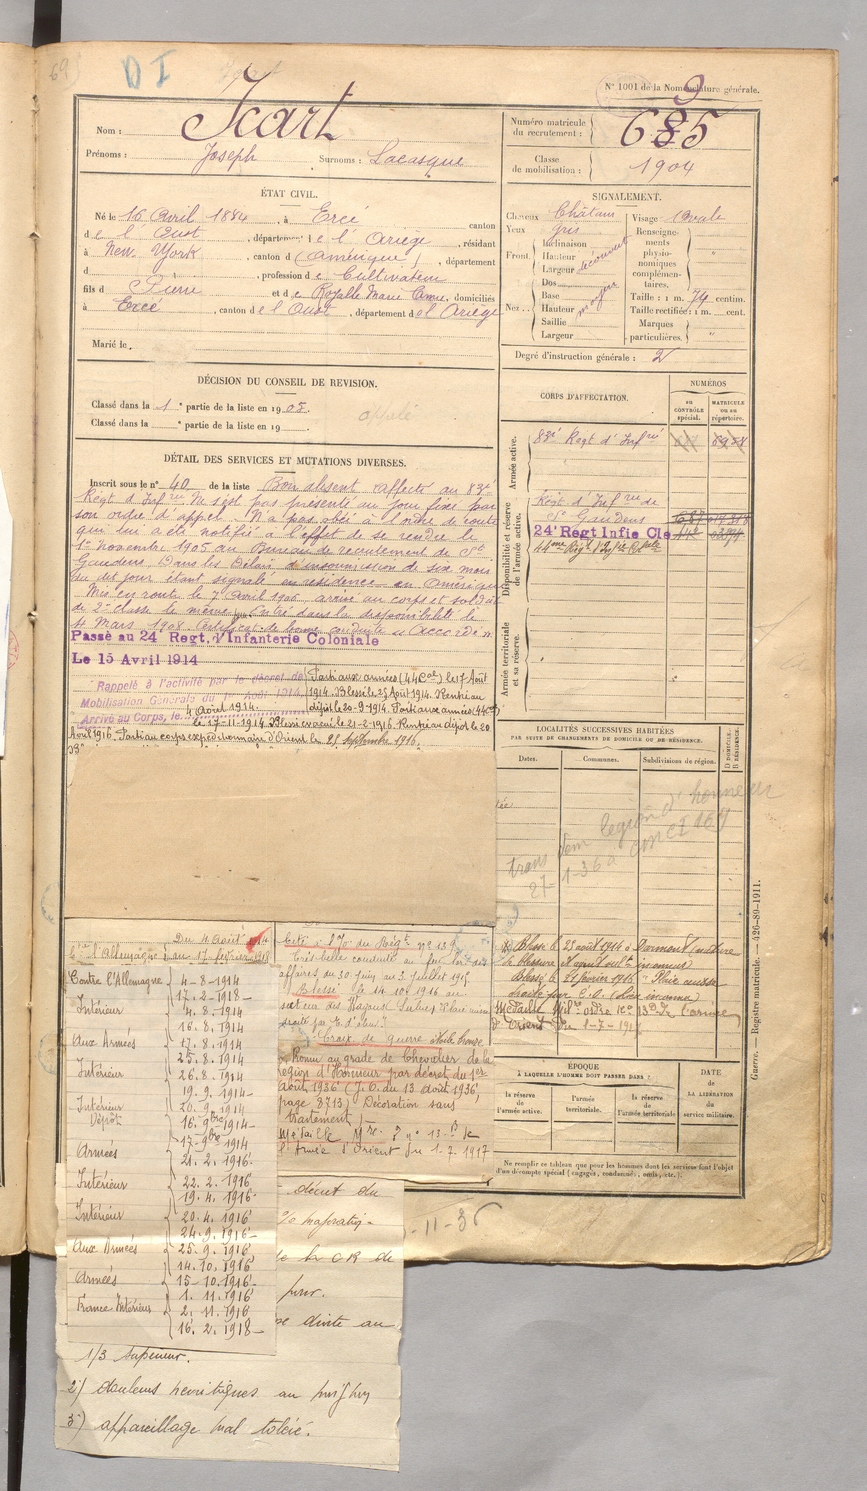 D I
N° 1001 de la Nomenclature générale.
9
Nom : Icart
Prénoms : Joseph Surnoms : Lacasque
Numéro matricule du recrutement : 685
Classe de mobilisation : 1904
ÉTAT CIVIL.
Né le 16 Avril 1884, à Ercé canton
de l'Oust, département de l'Ariège, résidant
à New York, canton d (Amérique), département
d , profession de Cultivateur
fils d Pierre et de Rosalie Marie Anne, domiciliés
à Ercé, canton de l'Oust, département de l'Ariège
Marié le
SIGNALEMENT.
Cheveux Châtain
Yeux gris
Front. Inclinaison
Hauteur découvert
Largeur
Nez. Dos
Base
Hauteur moyen
Saillie
Largeur
Visage Ovale
Renseignements physionomiques complémentaires.
Taille : 1 m. 74 centim.
Taille rectifiée : 1 m. cent.
Marques particulières.
Degré d'instruction générale : 2
DÉCISION DU CONSEIL DE REVISION.
Classé dans la 1e partie de la liste en 1905.
Classé dans la e partie de la liste en 19
appelé
DÉTAIL DES SERVICES ET MUTATIONS DIVERSES.
Inscrit sous le n° 40 de la liste Bon absent affecté au 83e
Régt d'Infrie N'est pas présenté au jour fixé par
son ordre d'appel. N'a pas obéi à l'ordre de route
qui lui a été notifié à l'effet de se rendre le
1er Novembre 1905 au Bureau de recrutement de St
Gaudens. Dans les Délais d'insoumission de six mois
du dit jour étant signalé en résidence en Amérique
Mis en route le 7 Avril 1906 arrivé au corps et soldat
de 2e classe le même jour. Passé dans la disponibilité le
Mars 1908. Certificat de bonne conduite Accordé
Passé au 24 Regt. d'Infanterie Coloniale
Le 15 Avril 1914
Rappelé à l'activité par le décret de
Mobilisation Générale du 1er Août 1914.
Arrivé au Corps, le 4 Août 1914.
Parti aux armées (44 Cal) le 17 Août
1914. Blessé le 25 Août 1914. Rentré au
dépôt le 20-9-1914. Parti aux armées (44 Cal)
le 17-11-1914. Blessé évacué le 21-2-1916. Rentré au dépôt le 20
Août 1916. Parti au corps expéditionnaire d'Orient le 25 septembre 1916.
CORPS D'AFFECTATION.
NUMÉROS
au contrôle spécial.
matricule ou au répertoire.
Armée active.
83e Régt d'Infrie
Disponibilité et réserve de l'armée active.
Régt d'Infrie de
St Gaudens
24e Regt Infie Cle
44me Régt d'Infie Colale
Armée territoriale et sa réserve.
LOCALITÉS SUCCESSIVES HABITÉES
PAR SUITE DE CHANGEMENTS DE DOMICILE OU DE RÉSIDENCE.
Dates.
Communes.
Subdivisions de région.
D DOMICILE.
R RÉSIDENCE.
légion d'honneur
Blessé le 25 août 1914 à Jarmont (nature
de blessure et agent vulnt inconnus)
Blessé 21 février 1916
Médaille Milre ordre
d'Orient du 1-7-1917
Guerre. — Registre matricule. — 426-89-1911.
ÉPOQUE
À LAQUELLE L'HOMME DOIT PASSER DANS :
la réserve de l'armée active.
l'armée territoriale.
la réserve de l'armée territoriale.
DATE
DE LA LIBÉRATION
du service militaire.
Ne remplir ce tableau que pour les hommes dont les services font l'objet
d'un décompte spécial (engagés, condamnés, omis, etc.).
Du 4 août 1914
Contre l'Allemagne au 17 février 1918
Contre l'Allemagne 4-8-1914
17.2-1918
Intérieur 4.8.1914
16.8.1914
Aux Armées 17.8.1914
25.8.1914
Intérieur 26.8.1914
19.9.1914
Intérieur Dépôt 20.9.1914
16.9bre 1914
Armées 17-9bre 1914
21.2.1916
Intérieur 22.2.1916
19.4.1916
Intérieur 20.4.1916
24.9.1916
Aux Armées 25.9.1916
14.10.1916
Armées 15-10.1916
1.11.1916
France Intérieur 2.11.1916
16.2.1918
Cité à l'O. du Régt n° 139
Très belle conduite au feu lors des
affaires du 30 juin au 3 juillet 1915
Blessé le 14 oct 1916 au
droite par E. d'obus
Croix de guerre étoile bronze
Promu au grade de Chevalier de la
Légion d'Honneur par décret du 1er
Août 1936 (J.O. du 13 août 1936,
page 8713) Décoration sans
traitement
Médaille Mre n° 13
l'Armée d'Orient du 1.7.1917
décret du
-11-36
de la CR de
pour.
droite au
1/3 supérieur.
2°) douleurs névritiques au
3°) appareillage mal toléré.